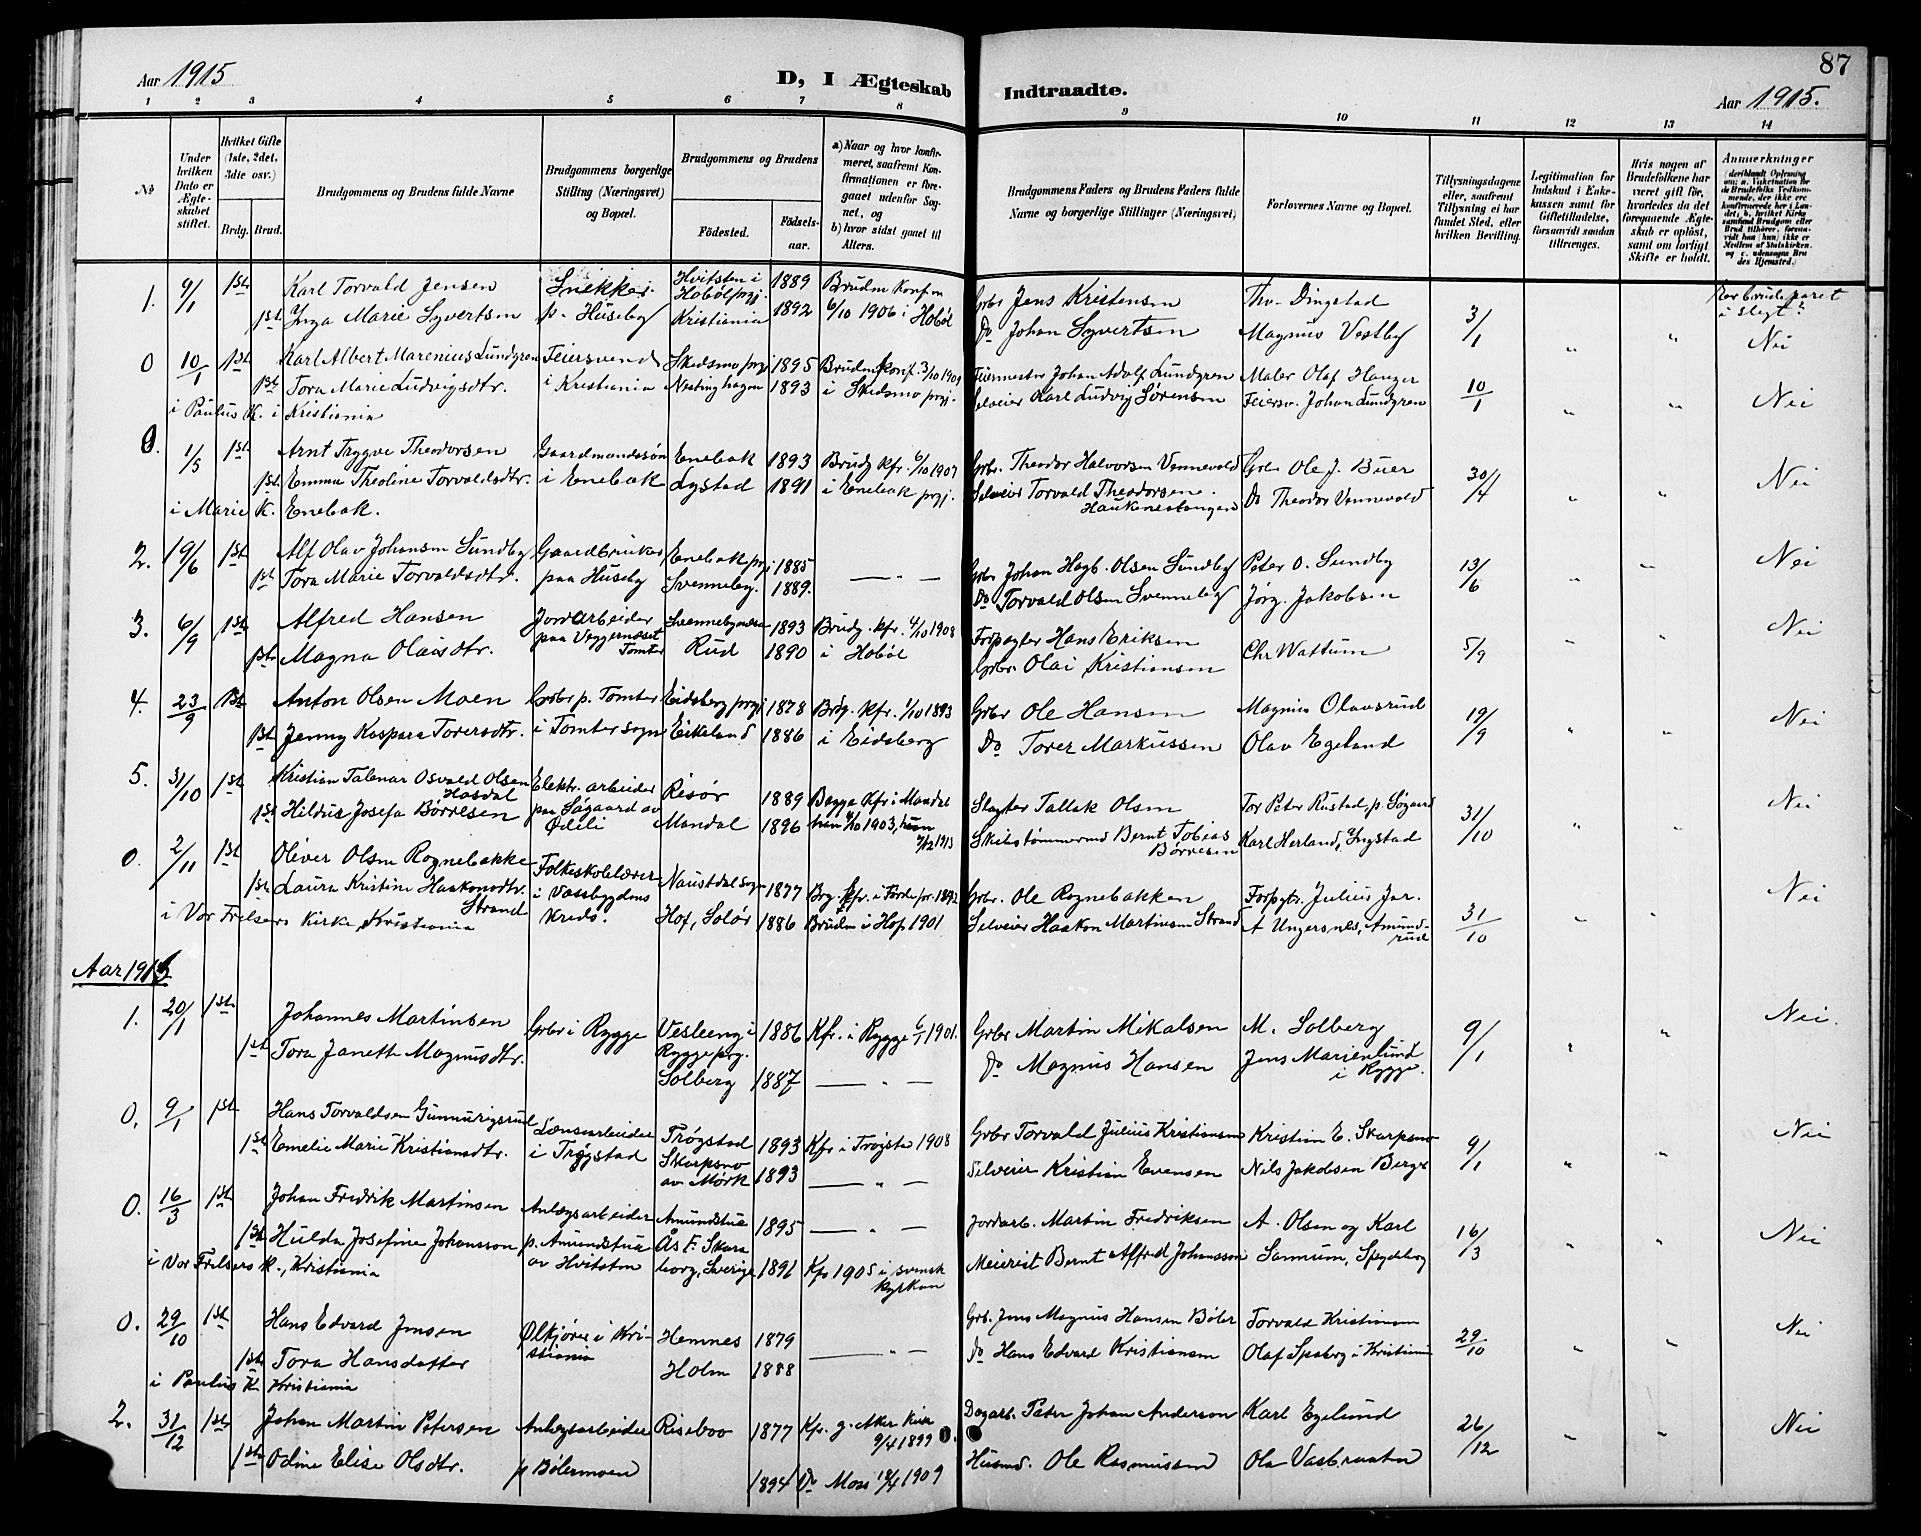 Aar 1915
D, I Ægteskab Indtraadte.
87
Aar 1915.
1 2 3 4 5 6 7 8 9 10 11 12 13 14
No
Under hvilken Dato er Ægteskabet stiftet.
Hvilket Gifte (1ste, 2det, 3dte osv.)
Brdg. Brud.
Brudgommens og Brudens fulde Navne
Brudgommens borgerlige Stilling (Næringsvei) og Bopæl.
Brudgommens og Brudens
Födested.
Födselsaar.
a) Naar og hvor konfirmeret, saafremt Konfirmationen er foregaaet udenfor Sognet, og b) hvor sidst gaaet til Alters.
Brudgommens Faders og Brudens Faders fulde Navne og borgerlige Stillinger (Næringsvei)
Forlovernes Navne og Bopæl.
Tillysningsdagene eller, saafremt Tillysning ei har fundet Sted, efter hvilken Bevilling.
Legitimation for Indskud i Enkekassen samt for Giftetilladelse, forsaavidt saadan tiltrænges.
Hvis nogen af Brudefolkene har været gift för, hvorledes da det foregaaende Ægteskab er oplöst, samt om lovligt Skifte er holdt.
Anmærkninger
Er brudeparet i slegt?
1. 9/1 1ste Karl Torvald Jensen Snekker Hvitsten i Hobøl prgj. 1889 Brudm Konf. 6/10 1906 i Hobøl Grbr Jens Kristensen Th. Dingstad 3/1 Nei
1st Inga Marie Syvertsen p. Huseby Kristiania 1892 Do Johan Syvertsen Magnus Vestby
0 10/1 1ste Karl Albert Marenius Lundgren Feiersvend Skedsmo prgj 1895 Brudm konf. 3/10 1909 Feiermester Johan Adolf Lundgren Maler Olaf Hauger 10/1 Nei
1ste Tora Marie Ludvigsdtr. i Kristiania 1893 i Skedsmo prgj. Selveier Karl Ludvig Sørensen Feiersv. Johan Lundgren
i Paulus K. i Kristiania
0. 1/5 1st Arnt Trygve Theodorsen Gaardmandssøn Enebak 1893 Brudg kfr. 6/10 1907 Grbr. Theodor Halvorsen Vennevold Grbr Ole J. Buer 30/4 Nei
1st Emma Theoline Torvaldsdtr. i Enebak Lystad 1891 i Enebak prgj. Selveier Torvald Theodorsen Haukenestangen Do Theodor Vennevold
i Marie K. Enebak.
2. 19/6 1st Alf Olav Johansen Sundby Gaardbruker Enebak prgj 1885 Grbr Johan Hagb. Olsen Sundby Peter O. Sundby 13/6 Nei
1st Tora Marie Torvaldsdtr. paa Huseby Svenneby. 1889. Do Torvald Olsen Svenneby Jörg. Jakobsen
3. 6/9 1st Alfred Hansen Jordarbeider 1893 Brudg. kfr. 4/10 1908 Forpagter Hans Eriksen Chr Wattum 5/9 Nei
1st Magna Olaisdtr. paa Veggernæset Tomter Rud 1890 i Hobøl Grbr. Olai Kristiansen
4. 23/9 1st Anton Olsen Moen Grdbr p. Tomter Eidsberg prgj 1878 Brdg. kfr. 1/10 1893 Grbr Ole Hansen Magnus Olavsrud 19/9 Nei
1st Jenny Kaspara Torersdtr. i Tomter sogn Eikeland 1886 i Eidsberg Do Torer Markussen Olav Egeland
5. 31/10 1st Kristian Talenar Osvald Olsen Hasdal Elektr. arbeider Risør 1889 Begge Kfr i Mandal Slagter Tallak Olsen Tor Peter Rustad, p. Søgaard 31/10 Nei
1st Hildus Josefa Börresen paa Søgaard av Ödeli Mandal 1896 han 4/10 1903, hun 7/12 1913 Skibstømmermand Bernt Tobias Børresen Karl Herland, Ingstad
0. 2/11 1st Oliver Olsen Rognebakke Folkeskolelærer Naustdal sogn 1877 Brg. kfr. i Førde pr. 1892 Grbr. Ole Rognebakken Forpgtr. Julius Jar. 31/10 Nei
1st Laura Kristine Haakonsdtr. Strand i Vassbygdens Kreds. Hof, Solör 1886 Brudm i Hof 1901 Selveier Haakon Martinsen Strand A Ungersnes, Amundrud
i Vor Frelsers Kirke, Kristiania
Aar 1916
1. 20/1 1st Johannes Martinsen Grbr i Rygge Vesleeng i Rygge prg. 1886 Kfr. i Rygge 6/1 1901. Grbr Martin Mikalsen M. Solberg 9/1 Nei.
1st Tora Janette Magnusdtr. Solberg 1887 Do Magnus Hansen Jens Marienlund i Rygge.
0. 9/1 1st Hans Torvaldsen Gunnurigsrud Lænsearbeider Trøgstad 1893 Kfr i Trøgsta 1908 Grbr Torvald Julius Kristiansen Kristian E. Skarpsno 9/1 Nei
1st Emelie Marie Kristiansdtr. i Trøgstad Skarpsno av Mörk 1893 Selveier Kristian Evensen Nils Jakobsen Berge
0. 16/3 1st Johan Fredrik Martinsen Anlægsarbeider Amundstua 1895 Jordarb. Martin Fredriksen A. Olsen og Karl 16/3 Nei
1st Hulda Josefine Johansson p. Amundstua av Hvitsten Ås F. Skaraborg, Sverige 1891 Kfr 1905 i svensk kyrkan Meierist Bernt Alfred Johansson Sannum, Spydeberg
i Vor Frelsers K., Kristiania
0. 29/10 1st Hans Edvard Jensen Ølkjører i Kristiania Hemnes 1879 Grb. Jens Magnus Hansen Böler Torvald Kristiansen 29/10 Nei
1st Tora Hansdatter Holm 1888 Do Hans Edvard Kristiansen Olaf Speberg i Kristiania
i Paulus K. Kristiania
2. 31/12 1st Johan Martin Petersen Anlægsarbeider Risebro 1877 Kfr. g. Aker Kirke 9/4 1899 Dagarb. Peter Johan Anderson Karl Egelund 26/12 Nei
1ste Odine Elise Olsdtr. p Bølermoen 1894 Do Moss 18/4 1909 Husmd. Ole Rasmussen Ola Vasbraaten